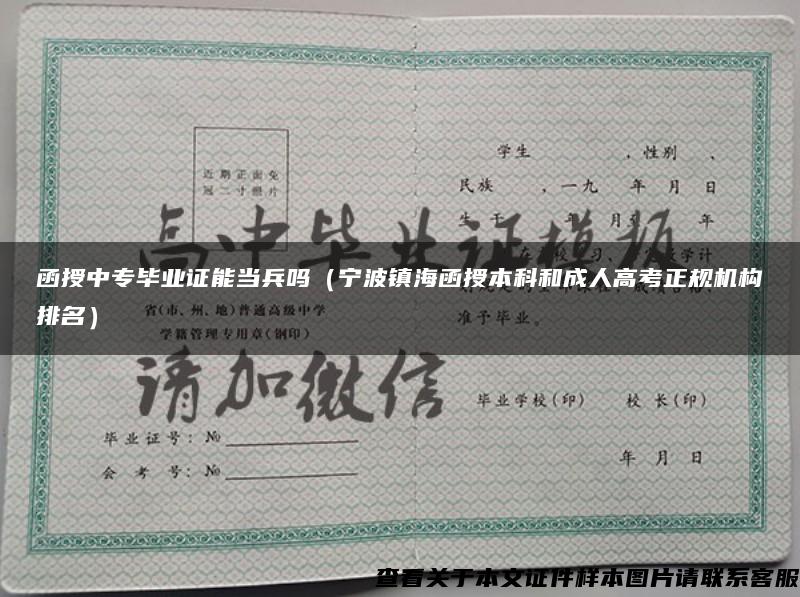 学生 ，性别 、
近期正面免
冠二寸照片
民族 ，一九 年 月 日
高中毕业证模板
函授中专毕业证能当兵吗（宁波镇海函授本科和成人高考正规机构
排名）
省(市、州、地)普通高级中学
学籍管理专用章(钢印)
准予毕业。
请加微信
毕业学校(印) 校长(印)
毕业证号：№
会 考 号：№
年 月 日
查看关于本文证件样本图片请联系客服